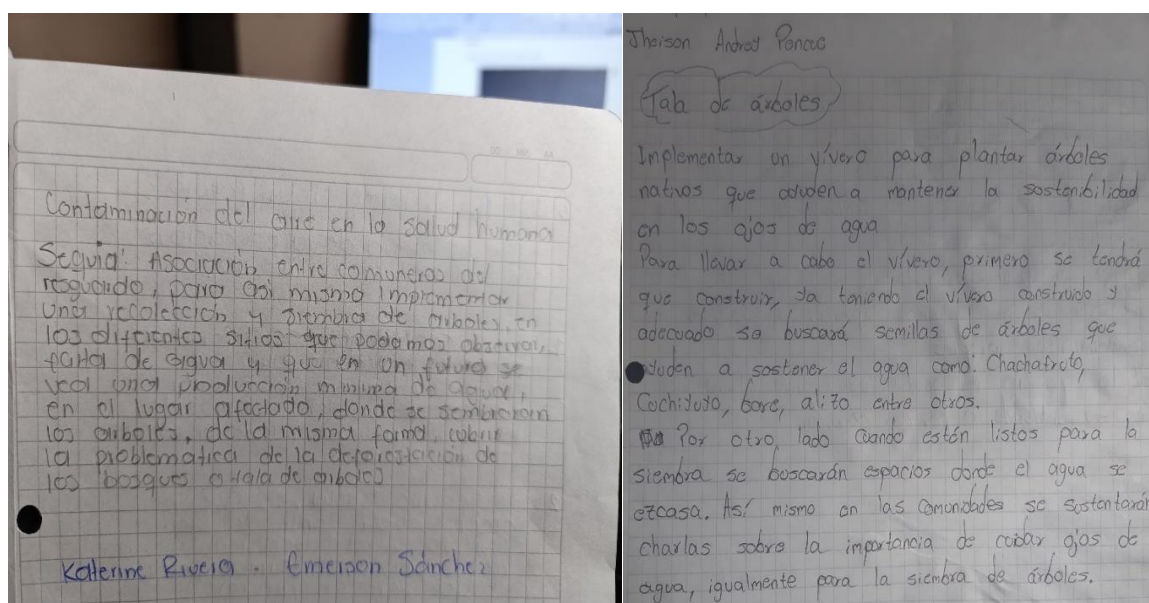 Contaminación del aire en la salud humana
Sequia: Asociación entre comuneros del
resguardo, para asi mismo implementar
una recolección y siembra de arboles en
los diferentes sitios que podamos observar,
falta de agua y que en un futuro se
vea una producción minima de agua,
en el lugar afectado, donde se sembraran
los arboles, de la misma forma, cubrir
la problematica de la deforestación de
los bosques o tala de arboles
Katerine Rivera - Emerson Sánchez
Jheison Andrey
Tala de árboles
Implementar un vívero para plantar árboles
nativos que ayuden a mantener la sostenibilidad
en los ojos de agua
Para llevar a cabo el vívero, primero se tendrá
que construir, ya teniendo el vívero construido y
adecuado se buscará semillas de árboles que
ayuden a sostener el agua como: Chachafruto,
Cochiyuyo, bore, alizo entre otros.
Por otro, lado cuando estén listos para la
siembra se buscarán espacios donde el agua se
ezcasa. Así mismo en las comonidades se sustentarán
charlas sobre la importancia de cuidar ojos de
agua, igualmente para la siembra de árboles.